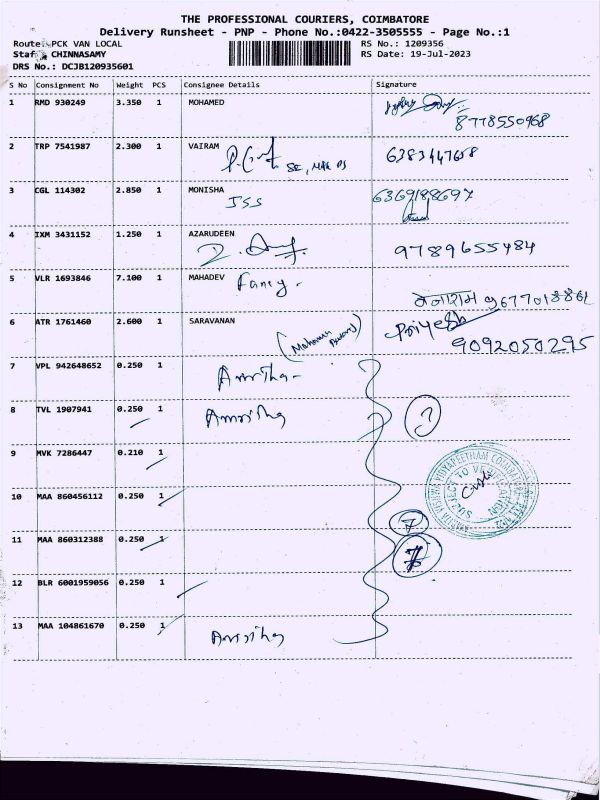 THE PROFESSIONAL COURIERS, COIMBATORE
Delivery Runsheet - PNP - Phone No.:0422-3505555 - Page No.:1
Route: PCK VAN LOCAL
RS No.: 1209356
Staf CHINNASAMY
RS Date: 19-Jul-2023
DRS No.: DCJB120935601
S No Consignment No Weight PCS Consignee Details Signature
1 RMD 930249 3.350 1 MOHAMED
8778550968
2 TRP 7541987 2.300 1 VAIRAM
6383447658
3 CGL 114302 2.850 1 MONISHA 6369188697
JSS
4 IXM 3431152 1.250 1 AZARUDEEN
9789655484
5 VLR 1693846 7.100 1 MAHADEV
Fancy.
9677018861
6 ATR 1761460 2.600 1 SARAVANAN Priyesh
9092050295
7 VPL 942648652 0.250 1
Amritha
8 TVL 1907941 0.250 1 Amritha
9 MVK 7286447 0.210 1
10 MAA 860456112 0.250 1
SUBJECT TO VERIFICATION
7
11 MAA 860312388 0.250 1
12 BLR 6001959056 0.250 1
13 MAA 104861670 0.250 1
Amritha